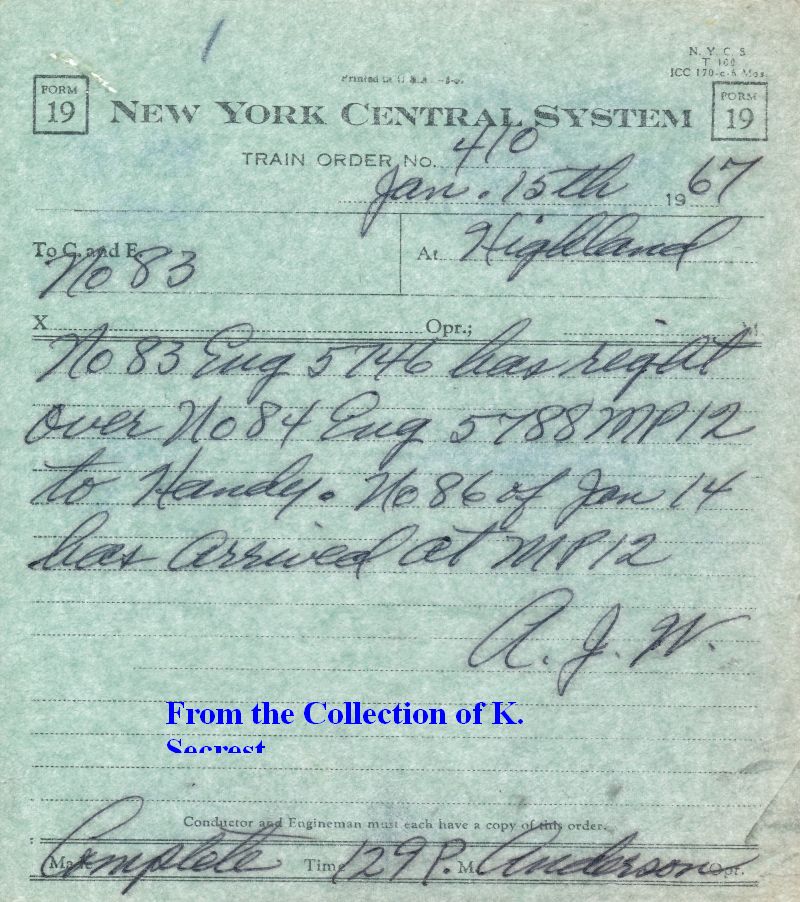 N. Y. C. S
T 100
ICC 170-c-6 Mos.
FORM 19
NEW YORK CENTRAL SYSTEM
FORM 19
TRAIN ORDER NO. 410
Jan. 15th 1967
To C. and E. No 83
At Highland
X Opr.; M
No 83 Eng 5746 has right
over No 84 Eng 5788 MP12
to Handy. No 86 of Jan 14
has arrived at MP12
A. J. W.
From the Collection of K.
Secrest
Conductor and Engineman must each have a copy of this order.
Made Complete Time 129 P. M. Anderson Opr.